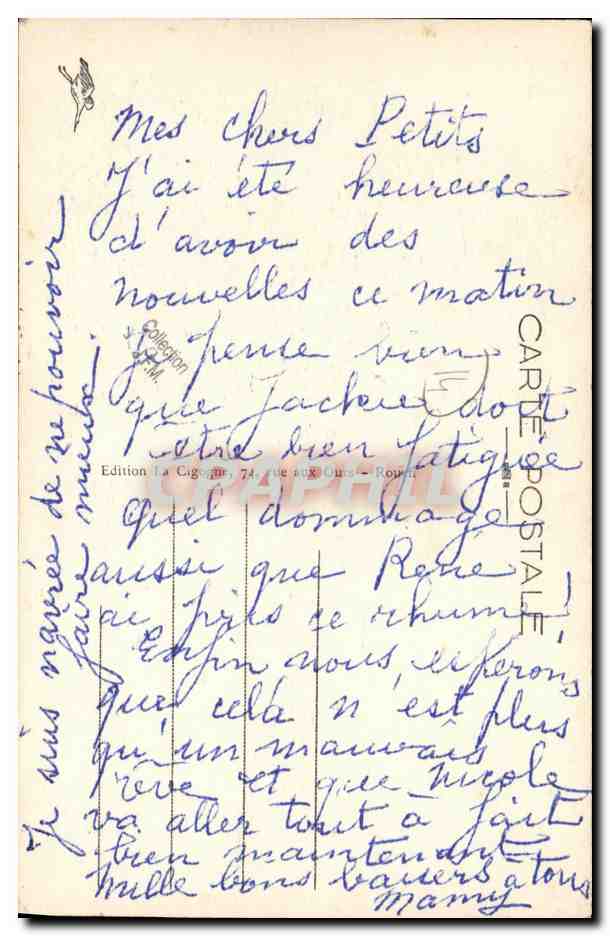 Mes chers Petits
J'ai été heureuse
d'avoir des
nouvelles ce matin
je pense bien
que Jackie doit
être bien fatiguée
quel dommage
aussi que René
ai pris ce rhume
Enfin nous esperons
que cela n'est plus
qu'un mauvais
rêve et que Nicole
va aller tout à fait
bien maintenant
Mille bons baisers à tous
Mamy
Je suis navrée de ne pouvoir
faire mieux.
Collection
Edition La Cigogne, 74, rue aux Ours - Rouen
CARTE POSTALE
CPAPHIL